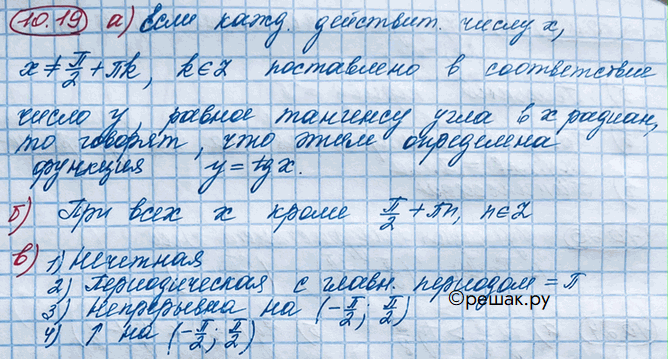 10.19 а) Если кажд. действит. числу x,
x ≠ π/2 + πk, k ∈ Z поставлено в соответствие
число y, равное тангенсу угла в x радиан,
то говорят, что этим определена
функция y = tg x.
б) При всех x кроме π/2 + πn, n ∈ Z
в) 1) Нечетная
2) Периодическая с главн. периодом = π
3) Непрерывна на (-π/2; π/2)
4) ↑ на (-π/2; π/2)
©решак.ру